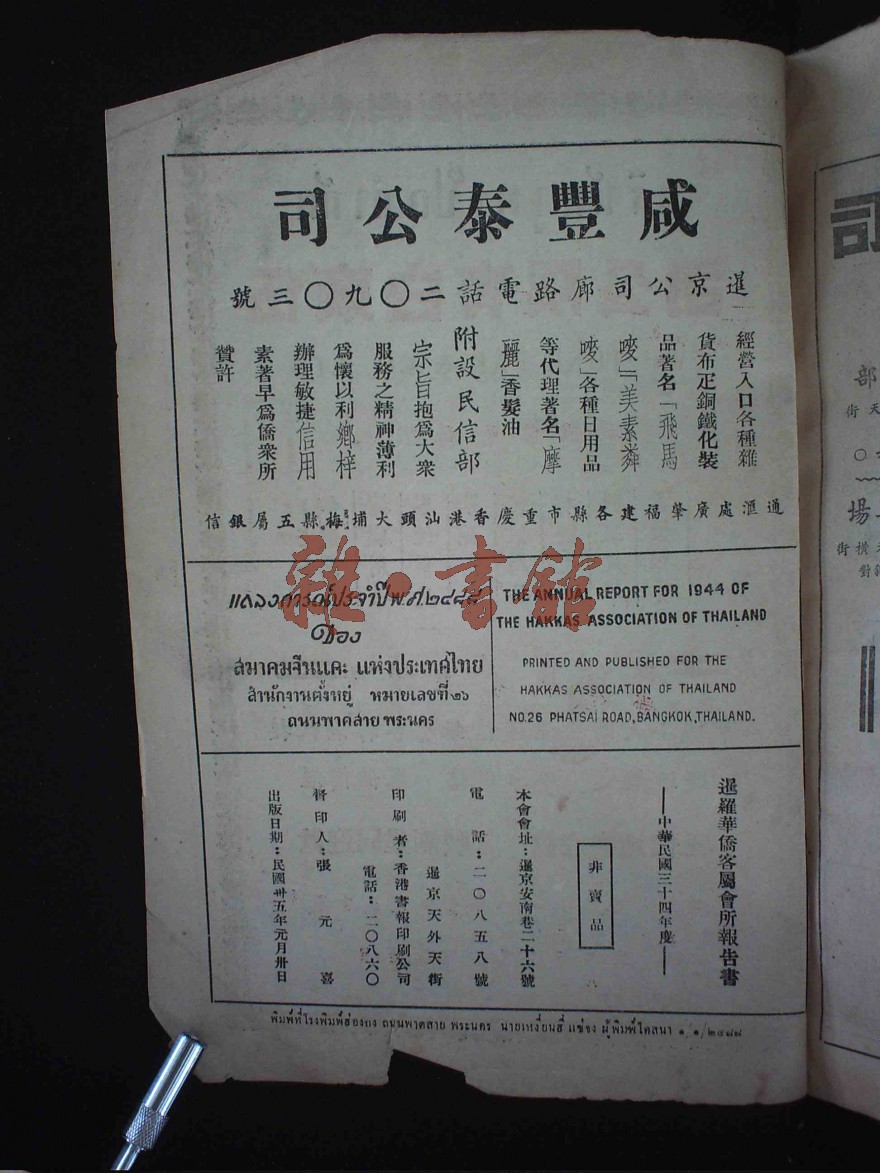 咸豐泰公司
暹京公司廊路電話二〇九〇三號
經營入口各種雜
貨布疋銅鐵化裝
品著名「飛馬
嘜」「美素粦
嘜」各種日用品
等代理著名「摩
麗」香髮油
附設民信部
宗旨抱爲大衆
服務之精神薄利
爲懷以利鄉梓
辦理敏捷信用
素著早爲僑衆所
贊許
通滙處廣肇福建各縣市重慶香港汕頭大埔梅縣五屬銀信
雜·書館
แถลงการณ์ประจำปีพ.ศ.๒๔๘๘
ของ
สมาคมจีนแคะ แห่งประเทศไทย
สำนักงานตั้งหยู่ หมายเลขที่๒๖
ถนนพาดสาย พระนคร
THE ANNUAL REPORT FOR 1944 OF
THE HAKKAS ASSOCIATION OF THAILAND
PRINTED AND PUBLISHED FOR THE
HAKKAS ASSOCIATION OF THAILAND
NO.26 PHATSAI ROAD, BANGKOK, THAILAND.
暹羅華僑客屬會所報告書
——中華民國三十四年度——
非賣品
本會會址：暹京安南巷二十六號
電話：二〇八五八號
暹京天外天街
印刷者：香港書報印刷公司
電話：二〇八六〇
督印人：張元喜
出版日期：民國卅五年元月卅日
พิมพ์ที่โรงพิมพ์ฮ่องกง ถนนพาดสาย พระนคร นายเหงี่ยนฮี่ แซ่จง ผู้พิมพ์โคสนา ๑.๑/๒๔๘๘
司
部
天街
場
横街
對